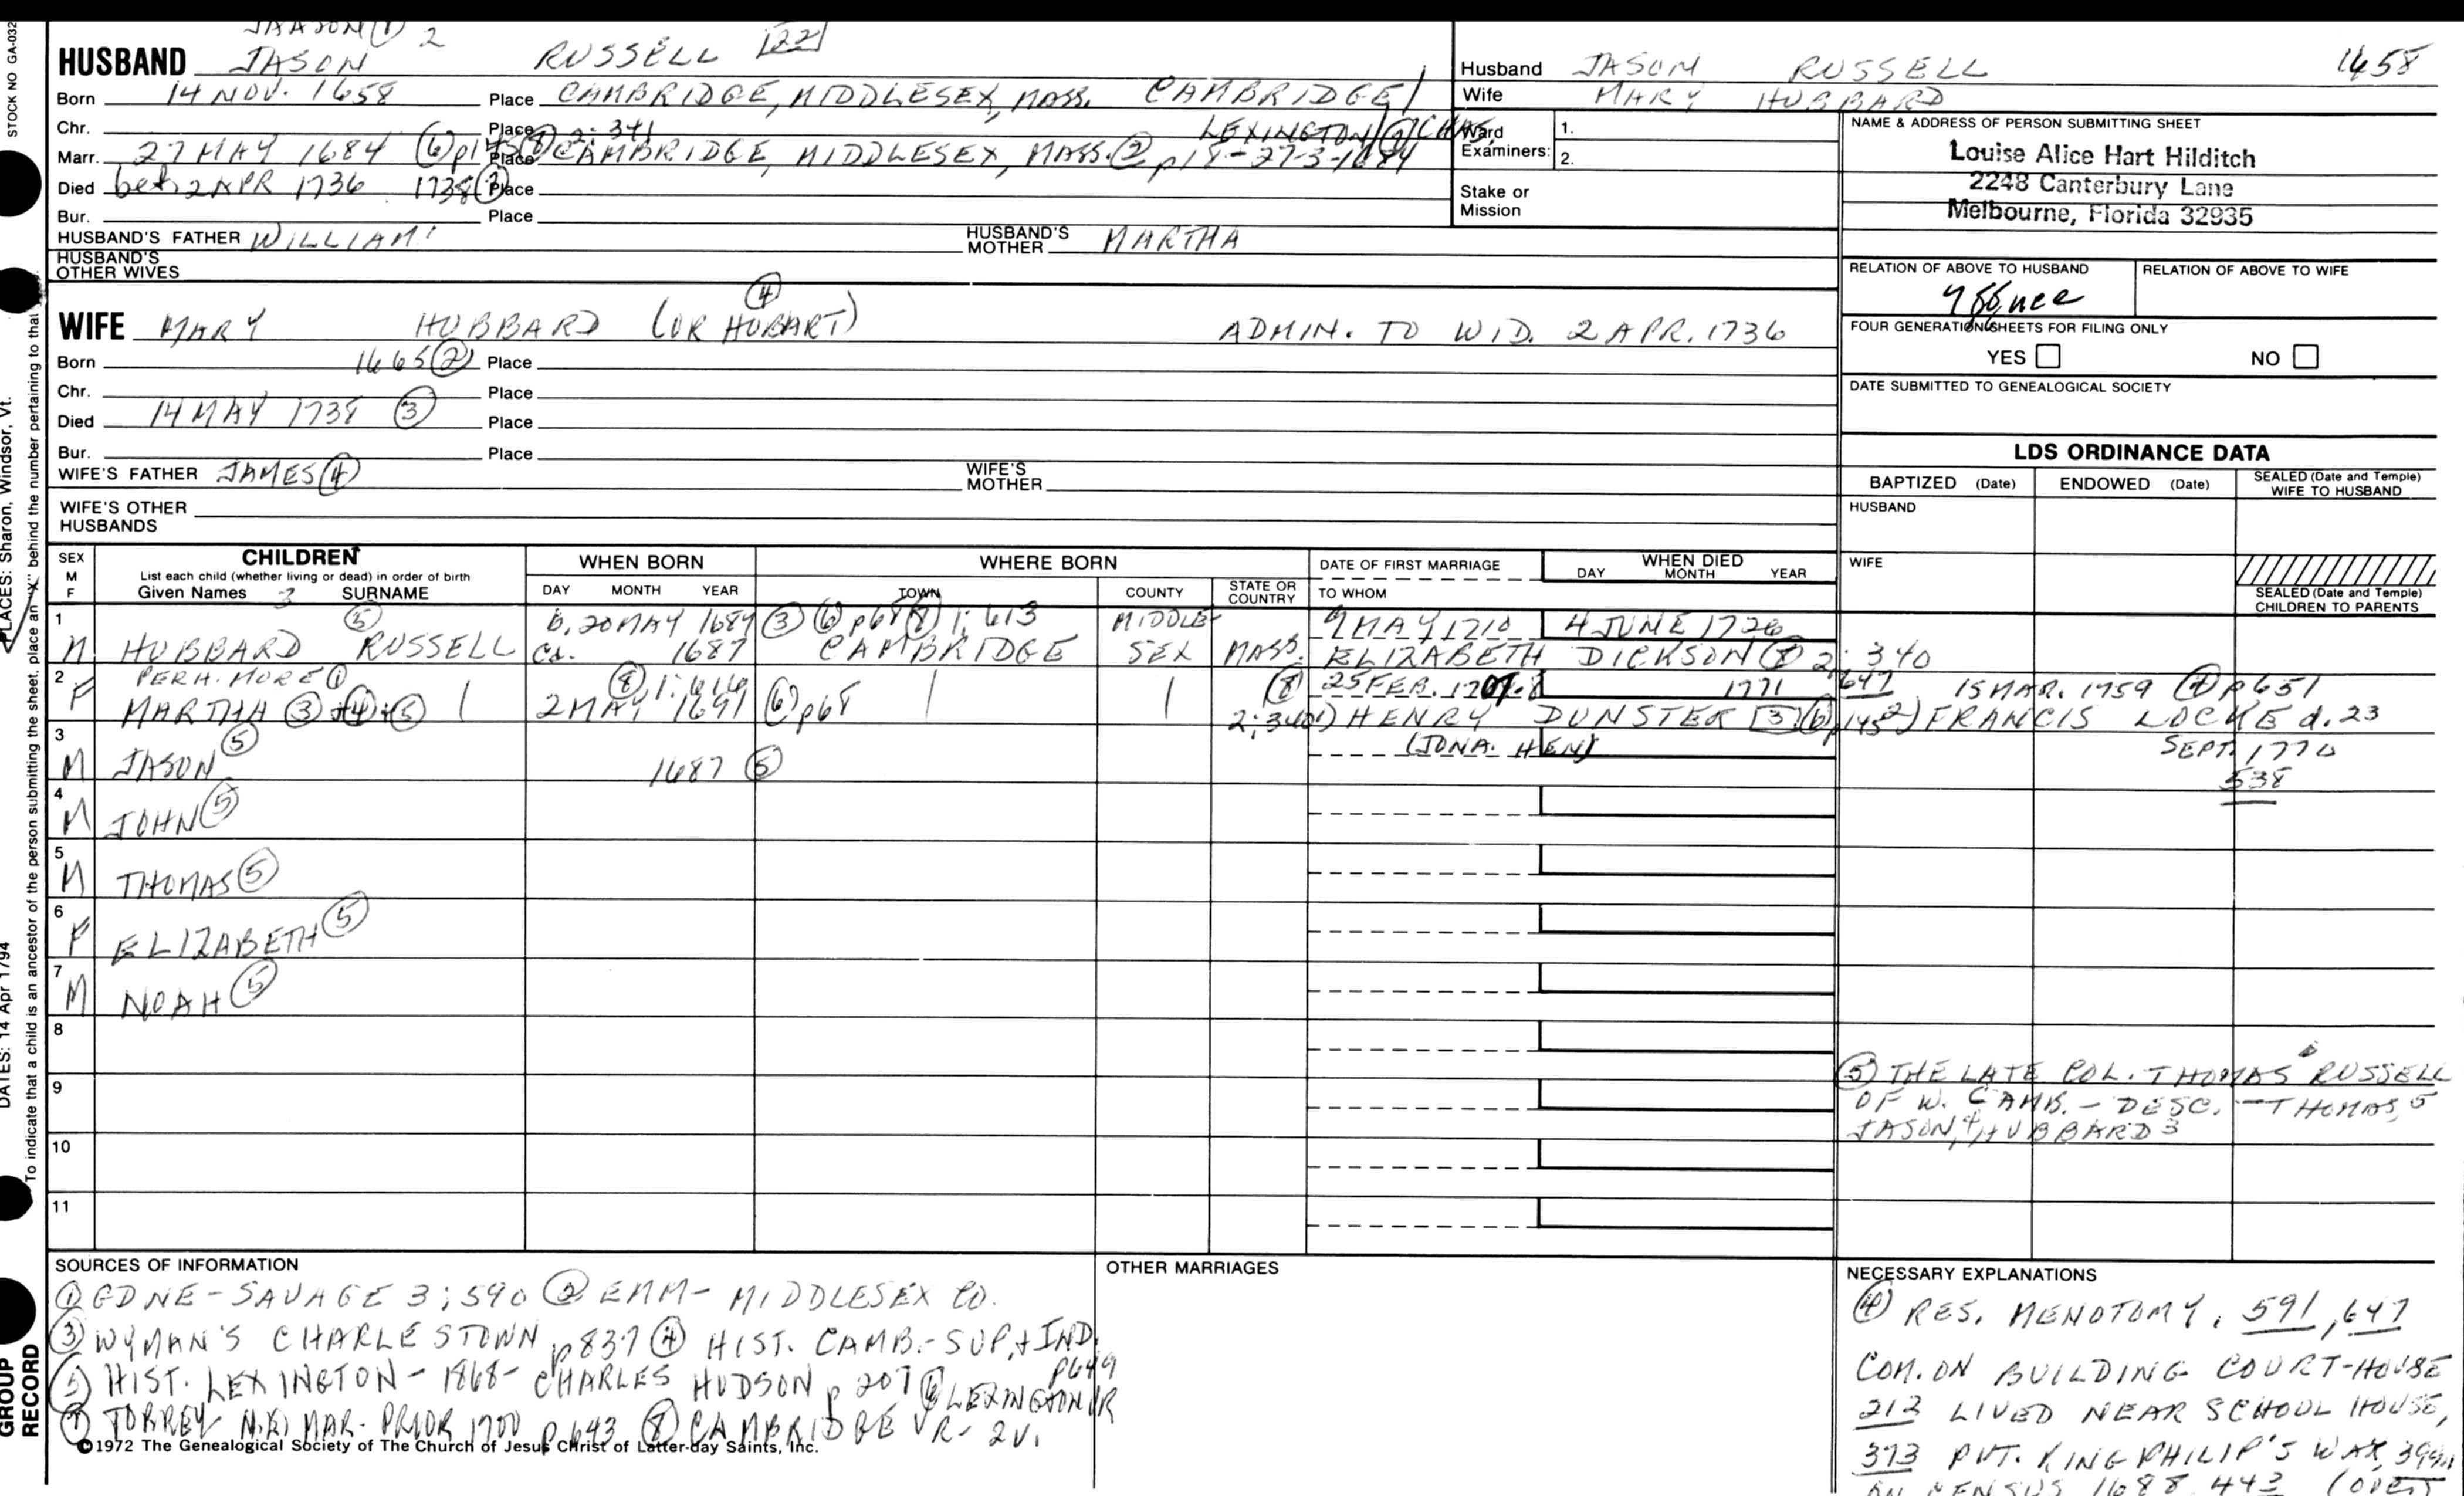 STOCK NO GA-032
JAASON (1) 2
HUSBAND JASON RUSSELL 22
Born 14 NOV. 1658 Place CAMBRIDGE, MIDDLESEX, MASS. CAMBRIDGE/
Chr. Place 2:341 LEXINGTON
Marr. 27 MAY 1684 (6) p145 (8) Place CAMBRIDGE, MIDDLESEX, MASS. (2) p18-27-3-1684
Died bef. 2 APR 1736 1738 (3) Place
Bur. Place
HUSBAND'S FATHER WILLIAM'
HUSBAND'S MOTHER MARTHA
HUSBAND'S OTHER WIVES
Husband JASON RUSSELL 1658
Wife MARY HUBBARD
Ward 1.
Examiners: 2.
Stake or Mission
NAME & ADDRESS OF PERSON SUBMITTING SHEET
Louise Alice Hart Hilditch
2248 Canterbury Lane
Melbourne, Florida 32935
RELATION OF ABOVE TO HUSBAND RELATION OF ABOVE TO WIFE
FOUR GENERATION SHEETS FOR FILING ONLY
YES NO
DATE SUBMITTED TO GENEALOGICAL SOCIETY
(4)
WIFE MARY HUBBARD (OR HOBART) ADMIN. TO WID. 2 APR. 1736
Born 1665 (2) Place
Chr. Place
Died 14 MAY 1738 (3) Place
Bur. Place
WIFE'S FATHER JAMES (4)
WIFE'S MOTHER
WIFE'S OTHER HUSBANDS
LDS ORDINANCE DATA
BAPTIZED (Date) ENDOWED (Date) SEALED (Date and Temple) WIFE TO HUSBAND
HUSBAND
WIFE
SEALED (Date and Temple) CHILDREN TO PARENTS
SEX M F
CHILDREN
List each child (whether living or dead) in order of birth
Given Names 3 SURNAME
WHEN BORN
DAY MONTH YEAR
WHERE BORN
TOWN COUNTY STATE OR COUNTRY
DATE OF FIRST MARRIAGE
TO WHOM
WHEN DIED
DAY MONTH YEAR
1 (5) b. 20 MAY 1687 (3) (6) p68 (8) 1:613 MIDDLE- 9 MAY 1710 4 JUNE 1726
M HUBBARD RUSSELL ca. 1687 CAMBRIDGE SEX MASS. ELIZABETH DICKSON (8) 2:340
2 PERH. MORE (1) (8) 1:614 (8) 25 FEB. 1707-8 1771 647 15 MAR. 1759 (4) p651
F MARTHA (3) + (4) + (5) 2 MAY 1691 (6) p68 2:340 1) HENRY DUNSTER 3 (6) p145 2) FRANCIS LOCKE d. 23
3 (JONA. HEN) SEPT. 1770
M JASON (5) 1687 (5) 538
4
M JOHN (5)
5
M THOMAS (5)
6
F ELIZABETH (5)
7
M NOAH (5)
8
9
10
11
(5) THE LATE COL. THOMAS RUSSELL
OF W. CAMB. - DESC. - THOMAS, 5
JASON, 4 HUBBARD 3
SOURCES OF INFORMATION
(1) GDNE - SAVAGE 3:590 (2) EMM - MIDDLESEX CO.
(3) WYMAN'S CHARLESTOWN p837 (4) HIST. CAMB. - SUP. + IND. p649
(5) HIST. LEXINGTON - 1868 - CHARLES HUDSON p 207 (6) LEXINGTON VR
(7) TORREY N.E. MAR. PRIOR 1700 p643 (8) CAMBRIDGE VR - 2V.
©1972 The Genealogical Society of The Church of Jesus Christ of Latter-day Saints, Inc.
OTHER MARRIAGES
NECESSARY EXPLANATIONS
(4) RES. MENOTOMY. 591, 647
COM. ON BUILDING COURT-HOUSE
212 LIVED NEAR SCHOOL HOUSE,
373 PVT. KING PHILIP'S WAR, 399n
ON CENSUS 1688, 443 (OVER)
PLACES: Sharon, Windsor, Vt.
DATES: 14 Apr 1794
To indicate that a child is an ancestor of the person submitting the sheet, place an "X" behind the number pertaining to that
GROUP RECORD